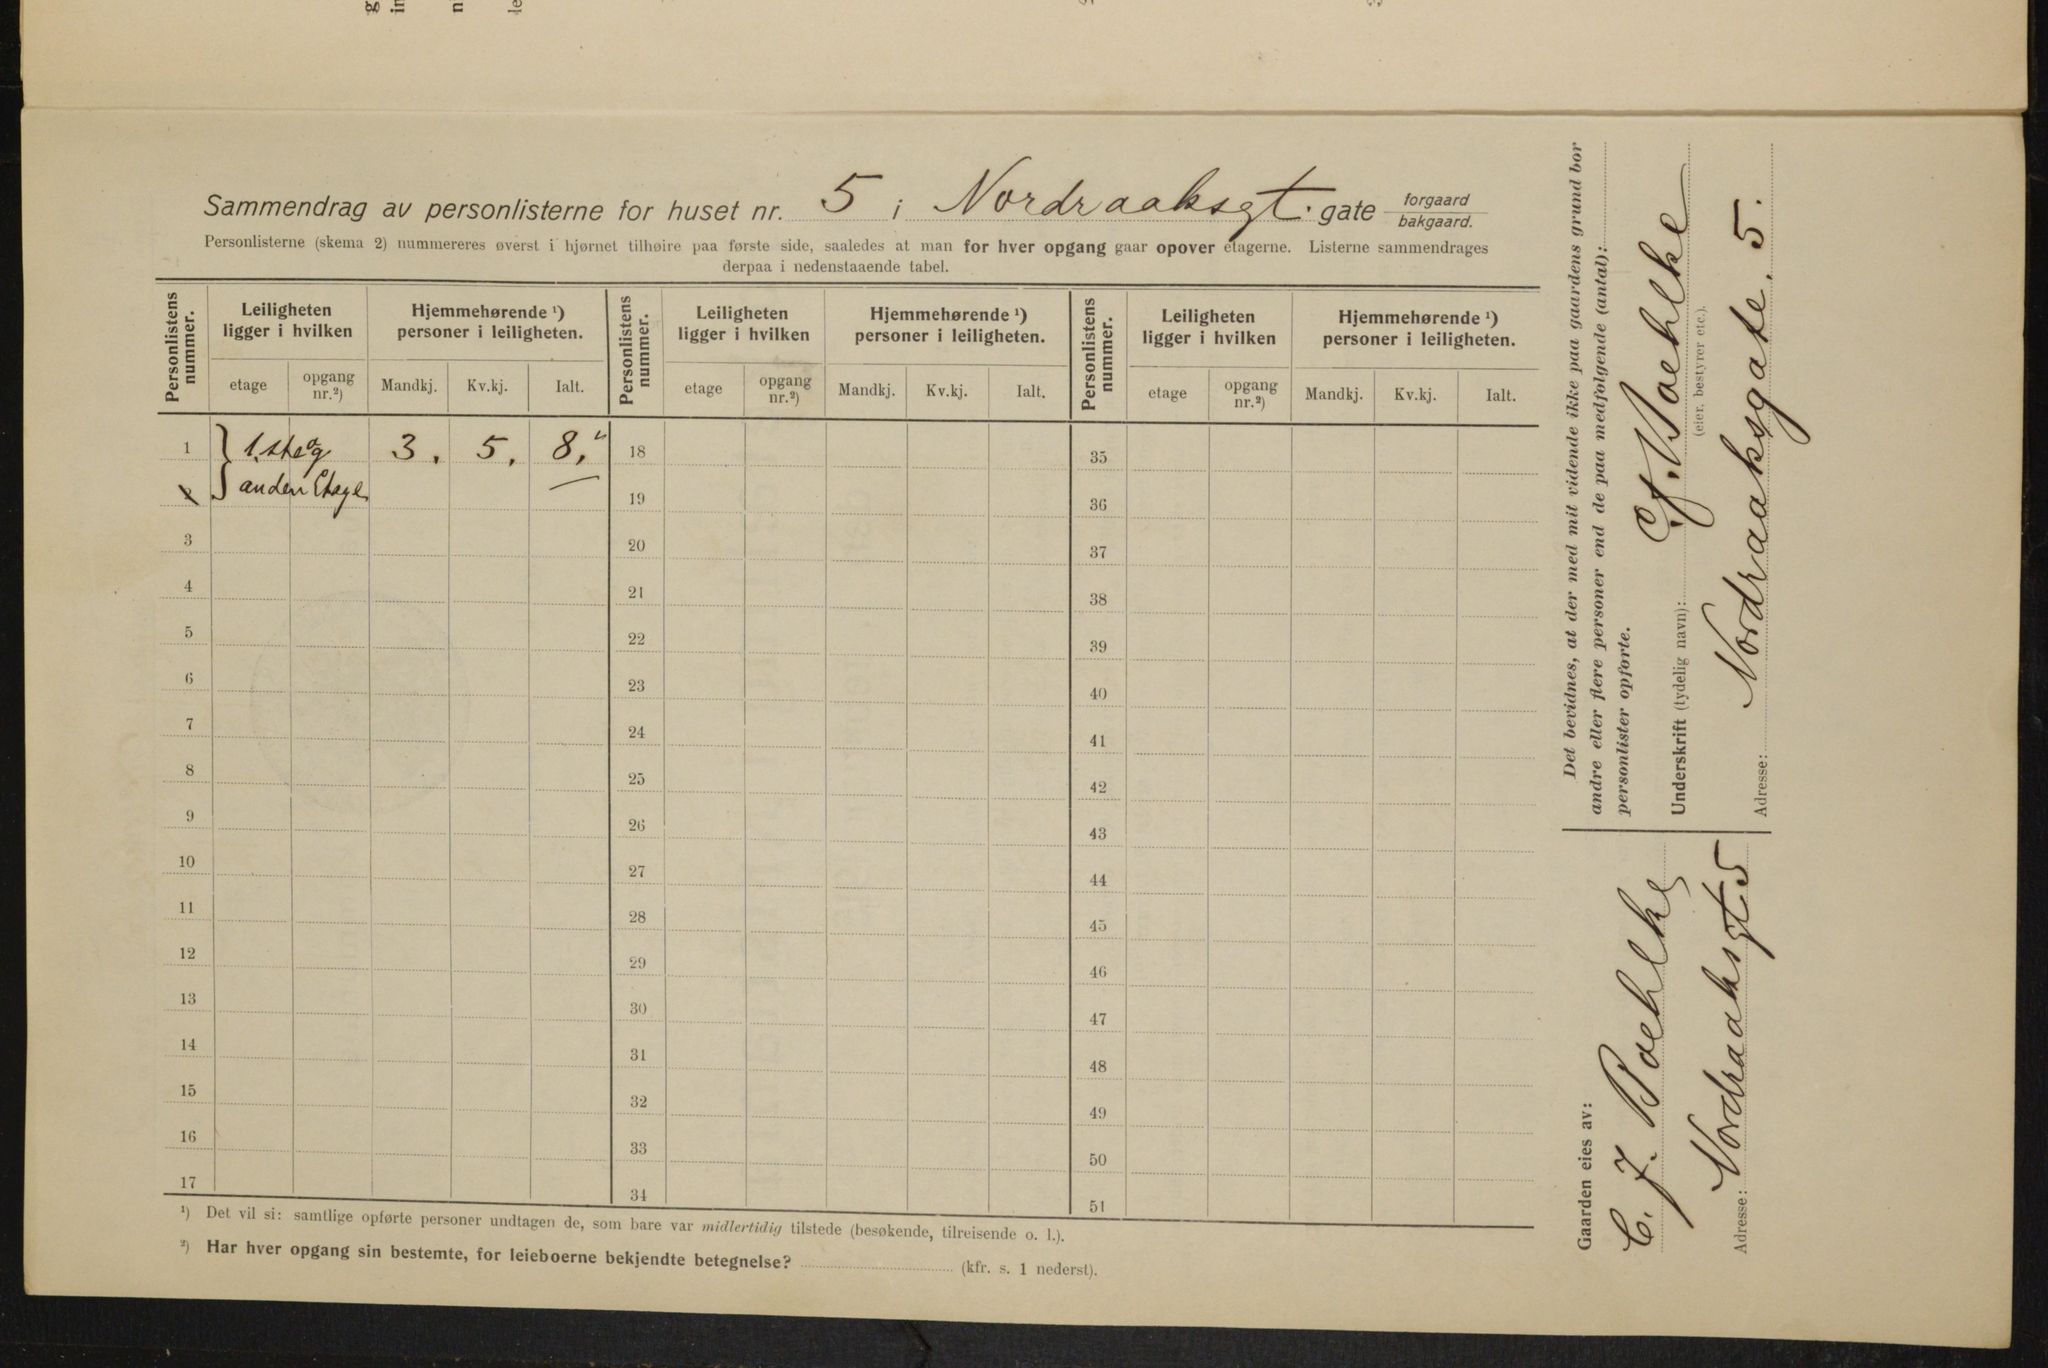 Sammendrag av personlisterne for huset nr. 5 i Nordraaksgt. gate forgaard
bakgaard.
Personlisterne (skema 2) nummereres øverst i hjørnet tilhøire paa første side, saaledes at man for hver opgang gaar opover etagerne. Listerne sammendrages
derpaa i nedenstaaende tabel.
Personlistens nummer. Leiligheten ligger i hvilken Hjemmehørende ¹) personer i leiligheten. Personlistens nummer. Leiligheten ligger i hvilken Hjemmehørende ¹) personer i leiligheten. Personlistens nummer. Leiligheten ligger i hvilken Hjemmehørende ¹) personer i leiligheten.
etage opgang nr.²) Mandkj. Kv.kj. Ialt. etage opgang nr.²) Mandkj. Kv.kj. Ialt. etage opgang nr.²) Mandkj. Kv.kj. Ialt.
1 1.ste og 3. 5. 8. 18 35
anden Etage 19 36
3 20 37
4 21 38
5 22 39
6 23 40
7 24 41
8 25 42
9 26 43
10 27 44
11 28 45
12 29 46
13 30 47
14 31 48
15 32 49
16 33 50
17 34 51
¹) Det vil si: samtlige opførte personer undtagen de, som bare var midlertidig tilstede (besøkende, tilreisende o. l.).
²) Har hver opgang sin bestemte, for leieboerne bekjendte betegnelse? (kfr. s. 1 nederst).
Det bevidnes, at der med mit vidende ikke paa gaardens grund bor
andre eller flere personer end de paa medfølgende (antal):
personlister opførte.
Underskrift (tydelig navn): C. J. Boehlke
(eier, bestyrer etc.).
Adresse: Nordraaksgate. 5.
Gaarden eies av:
C. J. Boehlke
Adresse: Nordraaksgt 5